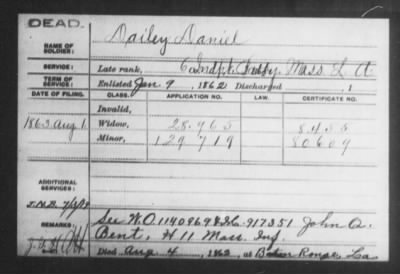 DEAD.
NAME OF SOLDIER: Dailey Daniel
SERVICE: Late rank, 6 Indpt. Batty. Mass L. A.
TERM OF SERVICE: Enlisted Jan 9, 1862 Discharged , 1
DATE OF FILING. CLASS. APPLICATION NO. LAW. CERTIFICATE NO.
Invalid,
1863 Aug 1 Widow, 28.965 8455
Minor, 129719 80609
ADDITIONAL SERVICES:
REMARKS: See W.O. 1140869 & W.C. 917351 John A.
Bent, H 11 Mass Inf.
Died Aug 4, 1862, at Baton Rouge, La